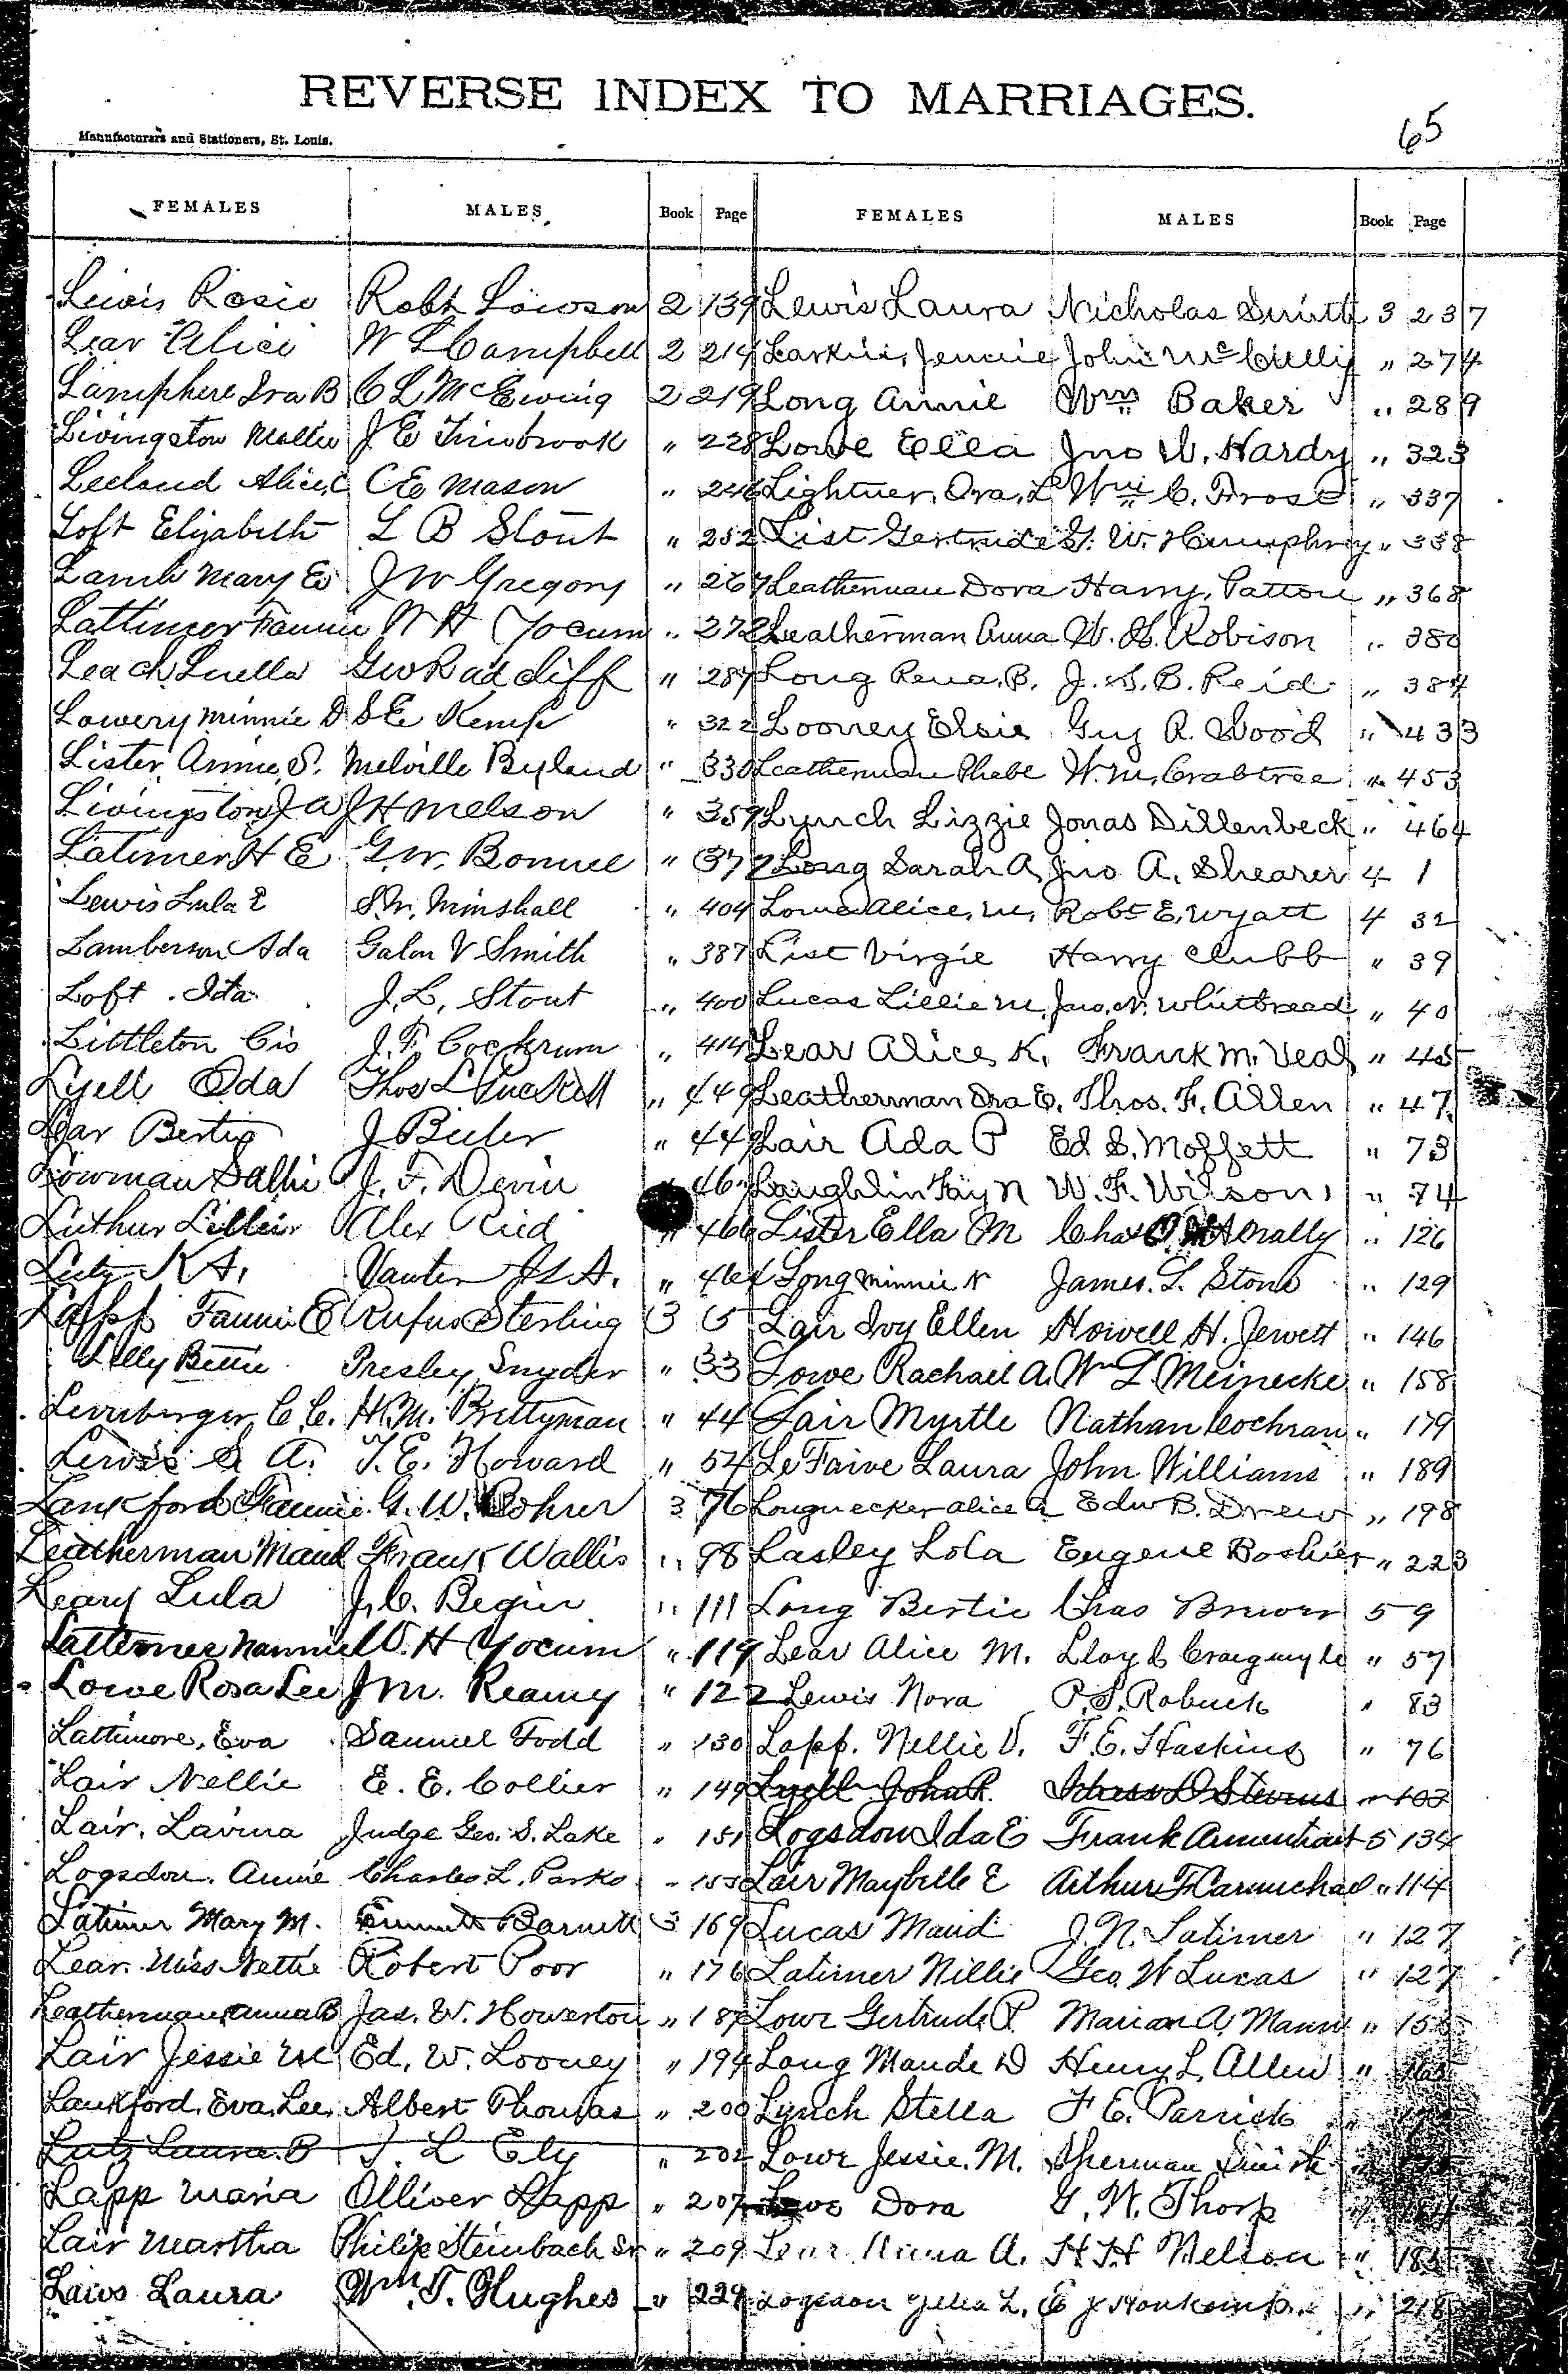 REVERSE INDEX TO MARRIAGES.
65
Manufacturers and Stationers, St. Louis.
FEMALES MALES Book Page FEMALES MALES Book Page
Lewis Rosie Robt Lawson 2 139 Lewis Laura Nicholas Smith 3 237
Lear Alice W L Campbell 2 214 Larkin, Jennie John McCully " 274
Lamphere Ira B C L McEwing 2 219 Long Annie Wm Baker " 289
Livingston Mollie J E Timbrook " 228 Lowe Ella Jno W. Hardy " 323
Leeland Alice C C E Mason " 246 Lightner, Ora, L Wm C. Frost " 337
Loft Elizabeth L B Stout " 252 List Gertrude G. W. Humphrey " 338
Lamb Mary E J W Gregory " 267 Leatherman Dora Harry Patton " 368
Lattimer Fannie W H Yocum " 272 Leatherman Anna W. H. Robison " 380
Leach Luella G W Radcliff " 287 Long Rena. B. J. S. B. Reid " 384
Lowery Minnie D S E Kemp " 322 Looney Elsie Guy R. Wood " 433
Lister Annie S. Melville Byland " 330 Leatherman Phebe W. M. Crabtree " 453
Livingston J A J H Melson " 359 Lynch Lizzie Jonas Dillenbeck " 464
Latimer H E G. W. Bonnel " 372 Long Sarah A Jno A. Shearer 4 1
Lewis Lula E S. M. Minshall " 404 Lowe Alice, M, Robt E. Wyatt 4 32
Lamberson Ada Galon V Smith " 387 List Virgie Harry Chubb " 39
Loft . Ida J. L. Stout " 400 Lucas Lillie M, Jno. N. Whitbread " 40
Littleton Cis J. F. Cockrum " 414 Lear Alice K. Frank M. Veal " 45
Lyell Oda Thos L Puckett " 449 Leatherman Ora E. Thos. F. Allen " 47
Lear Bertie J Bieler " 449 Lair Ada P Ed S. Moffett " 73
Lowman Sallie J. F. Devin " 46 Laughlin Fay N W. F. Wilson " 74
Luthur Lillie Alex Reid " 466 Lister Ella M Chas " 126
Lutz K A, Vanter J L A. " 464 Long Minnie N James. L. Stone " 129
Lapp Fannie E Rufus Sterling 3 5 Lair Ivy Ellen Howell H. Jewett " 146
Lilly Bettie Presley Snyder " 33 Lowe Rachael A. Wm L Meinecke " 158
Lernberger, C C. H. M. Brettyman " 44 Lair Myrtle Nathan Cochran " 179
Lewis S A. T. E. Howard " 54 LeFaive Laura John Williams " 189
Lankford Fannie G. W. Rohrer 3 76 Longnecker Alice A Edw B. Drew " 198
Leatherman Maud Frank Wallis " 98 Lasley Lola Eugene Boshier " 223
Leary Lula J. C. Begin " 111 Long Bertie Chas Brewer 5 9
Lattemer Nannie W. H Yocum " 119 Lear Alice M. Lloyd Craigmyle " 57
Lowe Rosa Lee J M. Reamy " 122 Lewis Nora P. S. Robuck " 83
Lattimore, Eva Samuel Todd " 130 Lapp. Nellie V. F. E. Haskins " 76
Lair Nellie E. E. Collier " 149 Lyell John R. Stevens " 103
Lair, Lavina Judge Geo. S. Lake " 151 Logsdon Ida E Frank Amentrout 5 134
Logsdon. Annie Charles L. Parks " 155 Lair Maybelle E Arthur F Carmichael " 114
Latimer Mary M. Emmett Barnett 3 169 Lucas Maud J. N. Latimer " 127
Lear. Miss Nettie Robert Poor " 176 Latimer Nillie Geo W Lucas " 127
Leatherman, Anna B Jas. W. Howerton " 187 Lowe Gertrude P. Marion A. Mann "
Lair Jessie M Ed. W. Looney " 194 Long Maude D Henry L. Allen " 165
Lankford, Eva, Lee, Albert Thomas " 200 Lynch Stella F E. Parrick "
Lutz Laura. B J. L Ely " 202 Lowe Jessie. M. Sherman Smith
Lapp Maria Olliver Lapp " 207 Lowe Dora G. W. Thorp
Lair Martha Philip Steinbach Sr " 209 Lear Nina A. H H Nelson " 185
Laws Laura Wm. T. Hughes " 229 Logsdon L. " 218